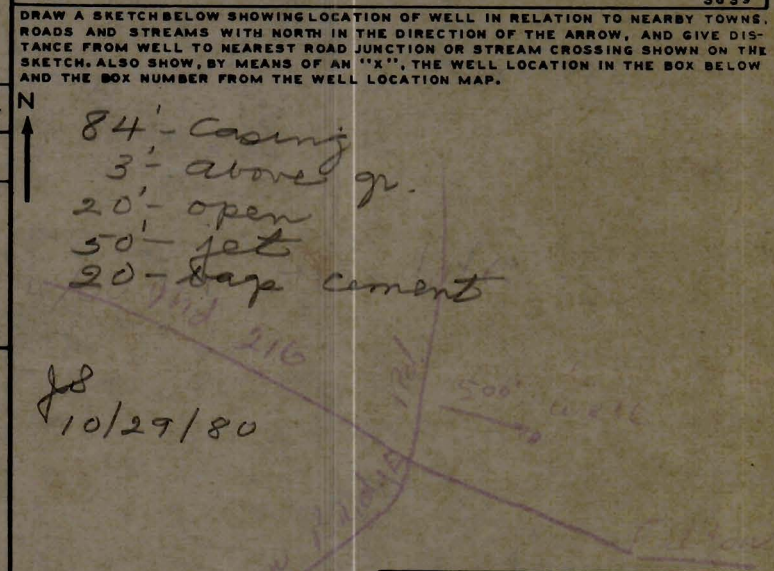 DRAW A SKETCH BELOW SHOWING LOCATION OF WELL IN RELATION TO NEARBY TOWNS,
ROADS AND STREAMS WITH NORTH IN THE DIRECTION OF THE ARROW, AND GIVE DIS-
TANCE FROM WELL TO NEAREST ROAD JUNCTION OR STREAM CROSSING SHOWN ON THE
SKETCH. ALSO SHOW, BY MEANS OF AN "X", THE WELL LOCATION IN THE BOX BELOW
AND THE BOX NUMBER FROM THE WELL LOCATION MAP.
N
84'- Casing
3'- above gr.
20'- open
50'- jet
20- bags cement
Md 216
Rd
500'
JS
10/29/80